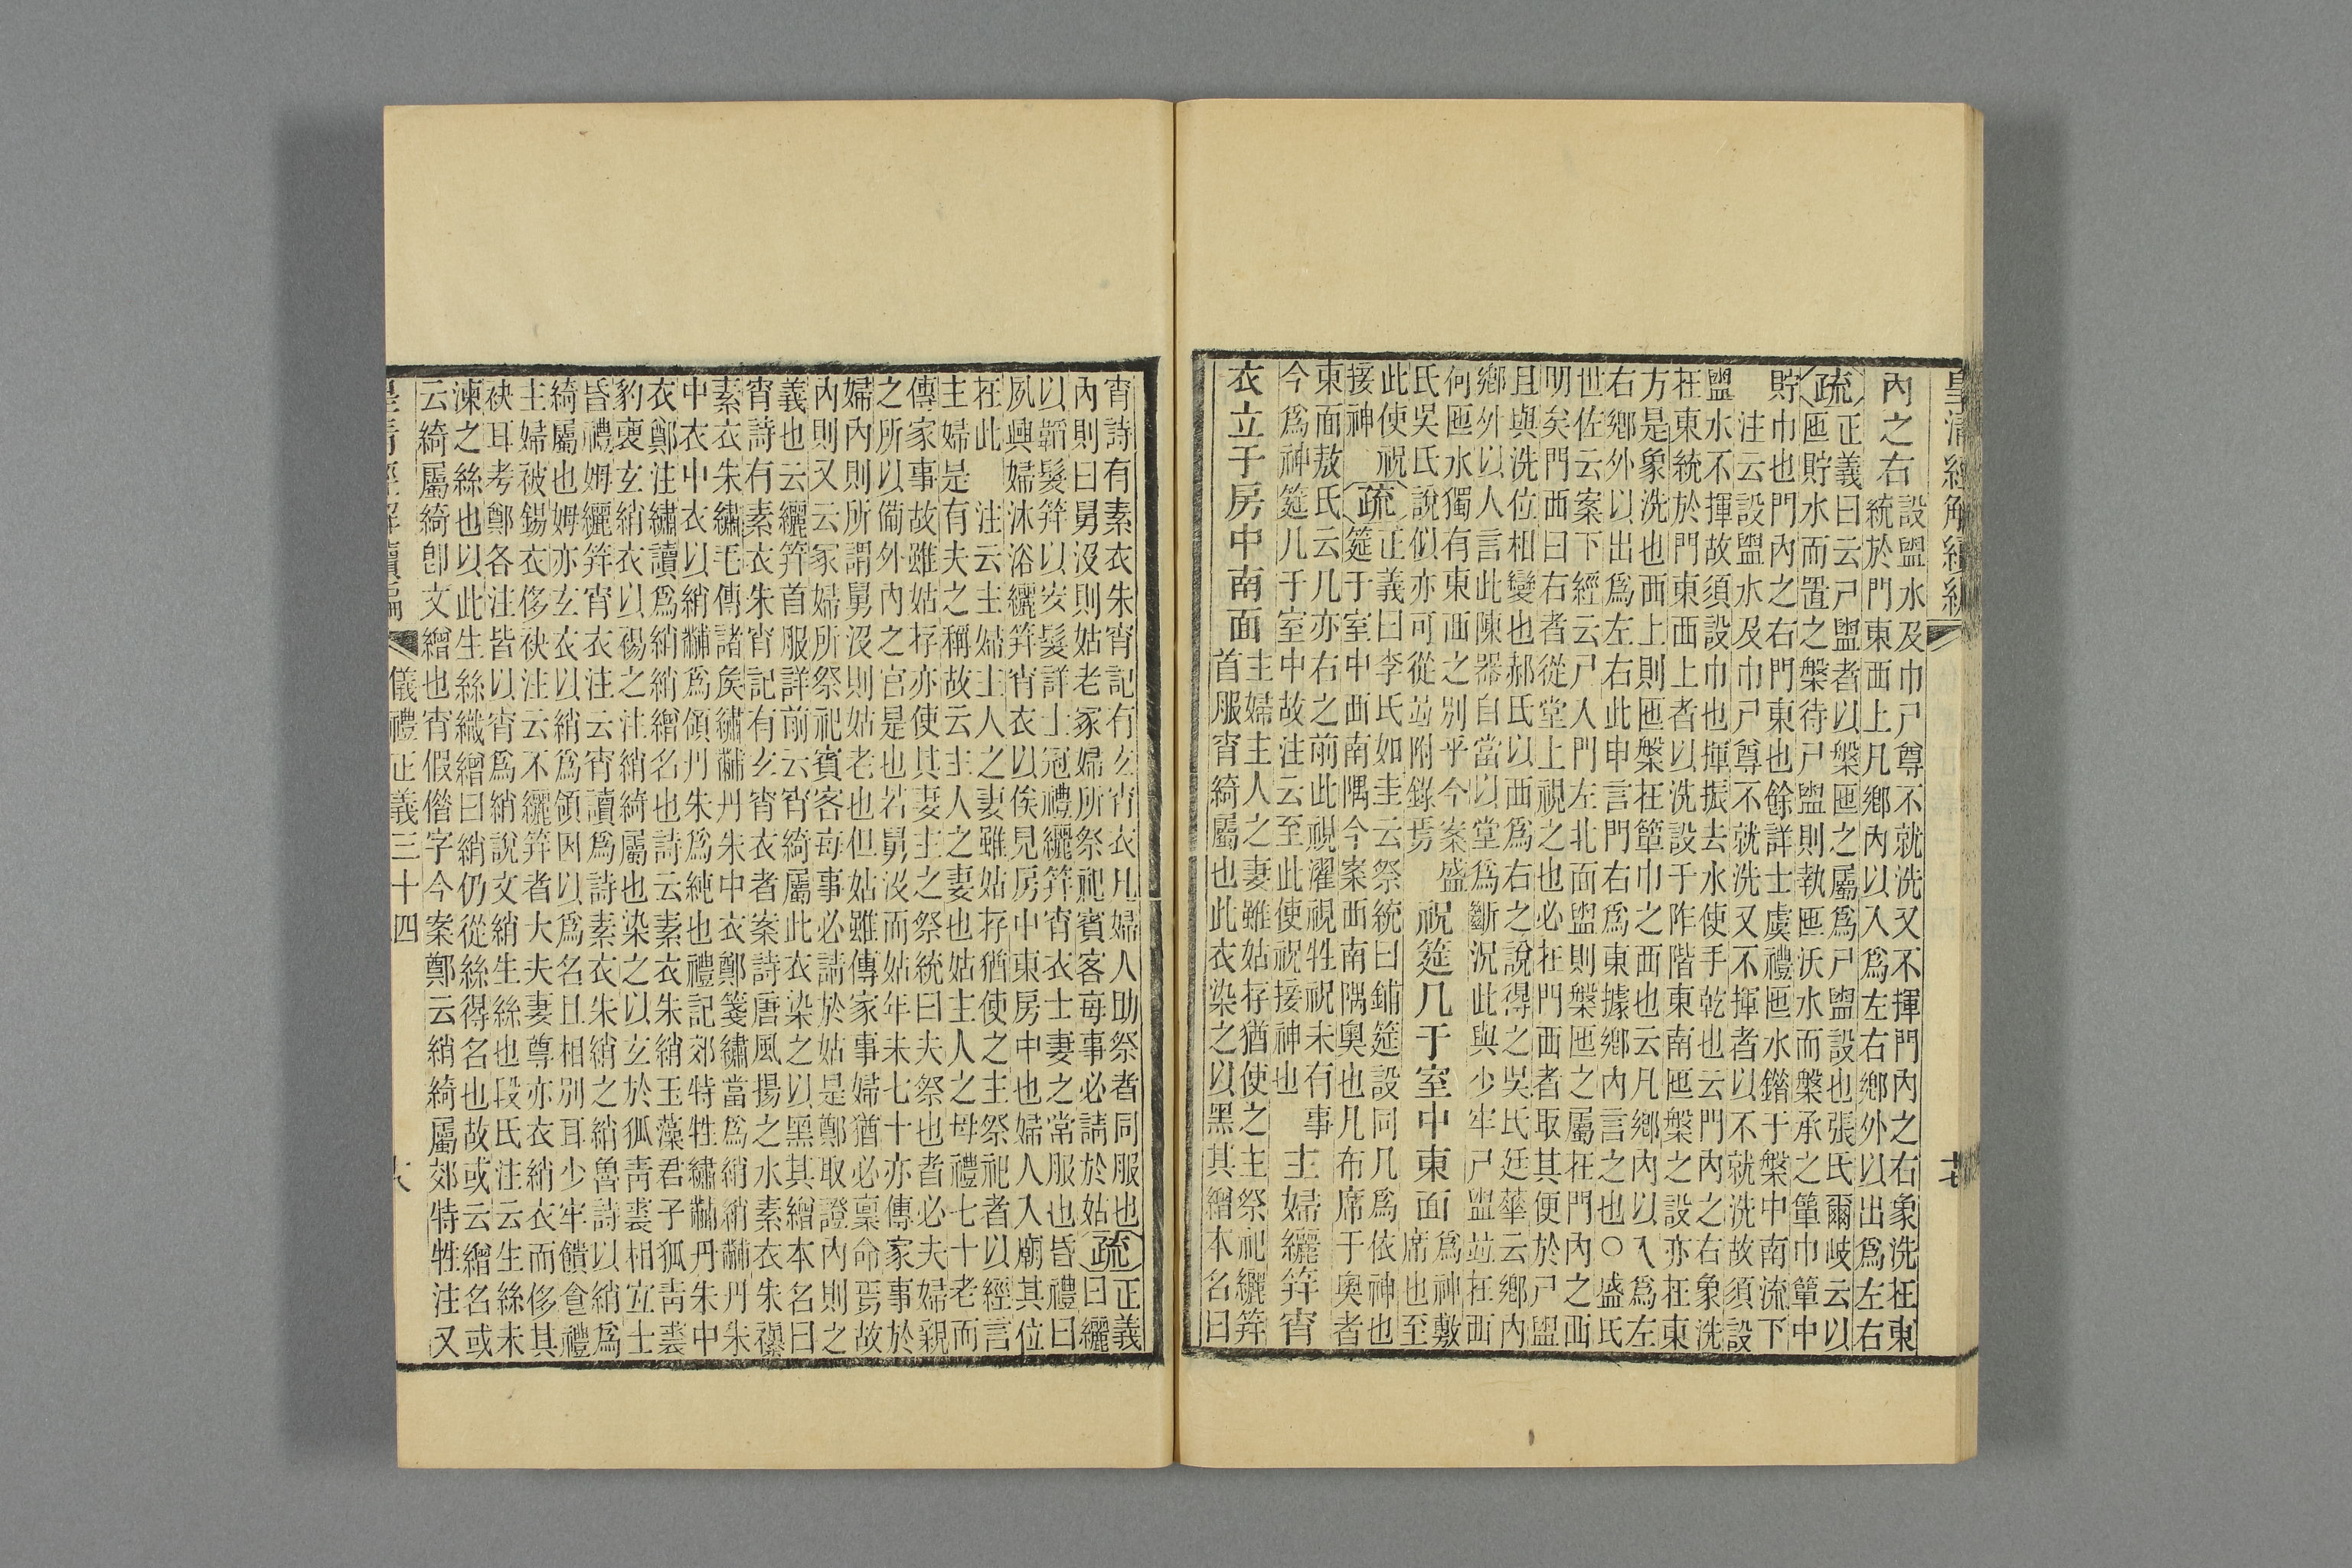 皇清經解續編
內之右設盥水及巾尸尊不就洗又不揮門內之右象洗在東
統於門東西上凡鄉內以入爲左右鄉外以出爲左右
疏正義曰云尸盥者以槃匜之屬爲尸盥設也張氏爾岐云以
匜貯水而置之槃待尸盥則執匜沃水而槃承之簞巾簞中
貯巾也門內之右門東也餘詳士虞禮匜水錯于槃中南流下
注云設盥水及巾尸尊不就洗又不揮者以不就洗故須設
盥水不揮故須設巾也揮振去水使手乾也云門內之右象洗
在東統於門東西上者以洗設于阼階東南匜槃之設亦在東
方是象洗也西上則匜槃在簞巾之西也云凡鄉內以入爲左
右鄉外以出爲左右此申言門右爲東據鄉內言之也○盛氏
世佐云案下經云尸入門左北面盥則槃匜之屬在門內之西
明矣門西曰右者從堂上視之也必在門西者取其便於尸盥
且與洗位相變也郝氏以西爲右之說得之吳氏廷華云鄉內
鄉外以人言此陳器自當以堂爲斷況此與少牢尸盥竝在西
何匜水獨有東西之別乎今案盛
氏吳氏說似亦可從竝附錄焉
祝筵几于室中東面
爲神敷
席也至
此使祝
接神
疏正義曰李氏如圭云祭統曰鋪筵設同几爲依神也
筵于室中西南隅今案西南隅奧也几布席于奧者
東面敖氏云几亦右之前此視濯視牲祝未有事
今爲神筵几于室中故注云至此使祝接神也
主婦纚笄宵
衣立于房中南面
主婦主人之妻雖姑存猶使之主祭祀纚笄
首服宵綺屬也此衣染之以黑其繒本名曰
宵詩有素衣朱宵記有玄宵衣凡婦人助祭者同服也
內則曰舅沒則姑老冢婦所祭祀賓客每事必請於姑
疏正義
曰纚
以韜髮笄以安髮詳士冠禮纚笄宵衣士妻之常服也昏禮曰
夙興婦沐浴纚笄宵衣以俟見房中東房中也婦人入廟其位
在此 注云主婦主人之妻雖姑存猶使之主祭祀者以經言
主婦是有夫之稱故云主人之妻也姑主人之母禮七十老而
傳家事故雖姑存亦使其妻主之祭統曰夫祭也者必夫婦親
之所以備外內之官是也若舅沒而姑年未七十亦傳家事於
婦內則所謂舅沒則姑老也但姑雖傳家事婦猶必稟命焉故
內則又云冢婦所祭祀賓客每事必請於姑是鄭取證內則之
義也云纚笄首服詳前云宵綺屬此衣染之以黑其繒本名曰
宵詩有素衣朱宵記有玄宵衣者案詩唐風揚之水素衣朱襮
素衣朱繡毛傳諸矦繡黼丹朱中衣鄭箋繡當爲綃綃黼丹朱
中衣中衣以綃黼爲領丹朱爲純也禮記郊特牲繡黼丹朱中
衣鄭注繡讀爲綃綃繒名也詩云素衣朱綃玉藻君子狐靑裘
豹褎玄綃衣以裼之注綃綺屬也染之以玄於狐靑裘相宜士
昏禮姆纚笄宵衣注云宵讀爲詩素衣朱綃之綃魯詩以綃爲
綺屬也姆亦玄衣以綃爲領因以爲名且相別耳少牢饋食禮
主婦被錫衣侈袂注云不纚笄者大夫妻尊亦衣綃衣而侈其
袂耳考鄭各注皆以宵爲綃說文綃生絲也段氏注云生絲未
湅之絲也以此生絲織繒曰綃仍從絲得名也故或云繒名或
云綺屬綺卽文繒也宵假偕字今案鄭云綃綺屬郊特牲注又
儀禮正義三十四